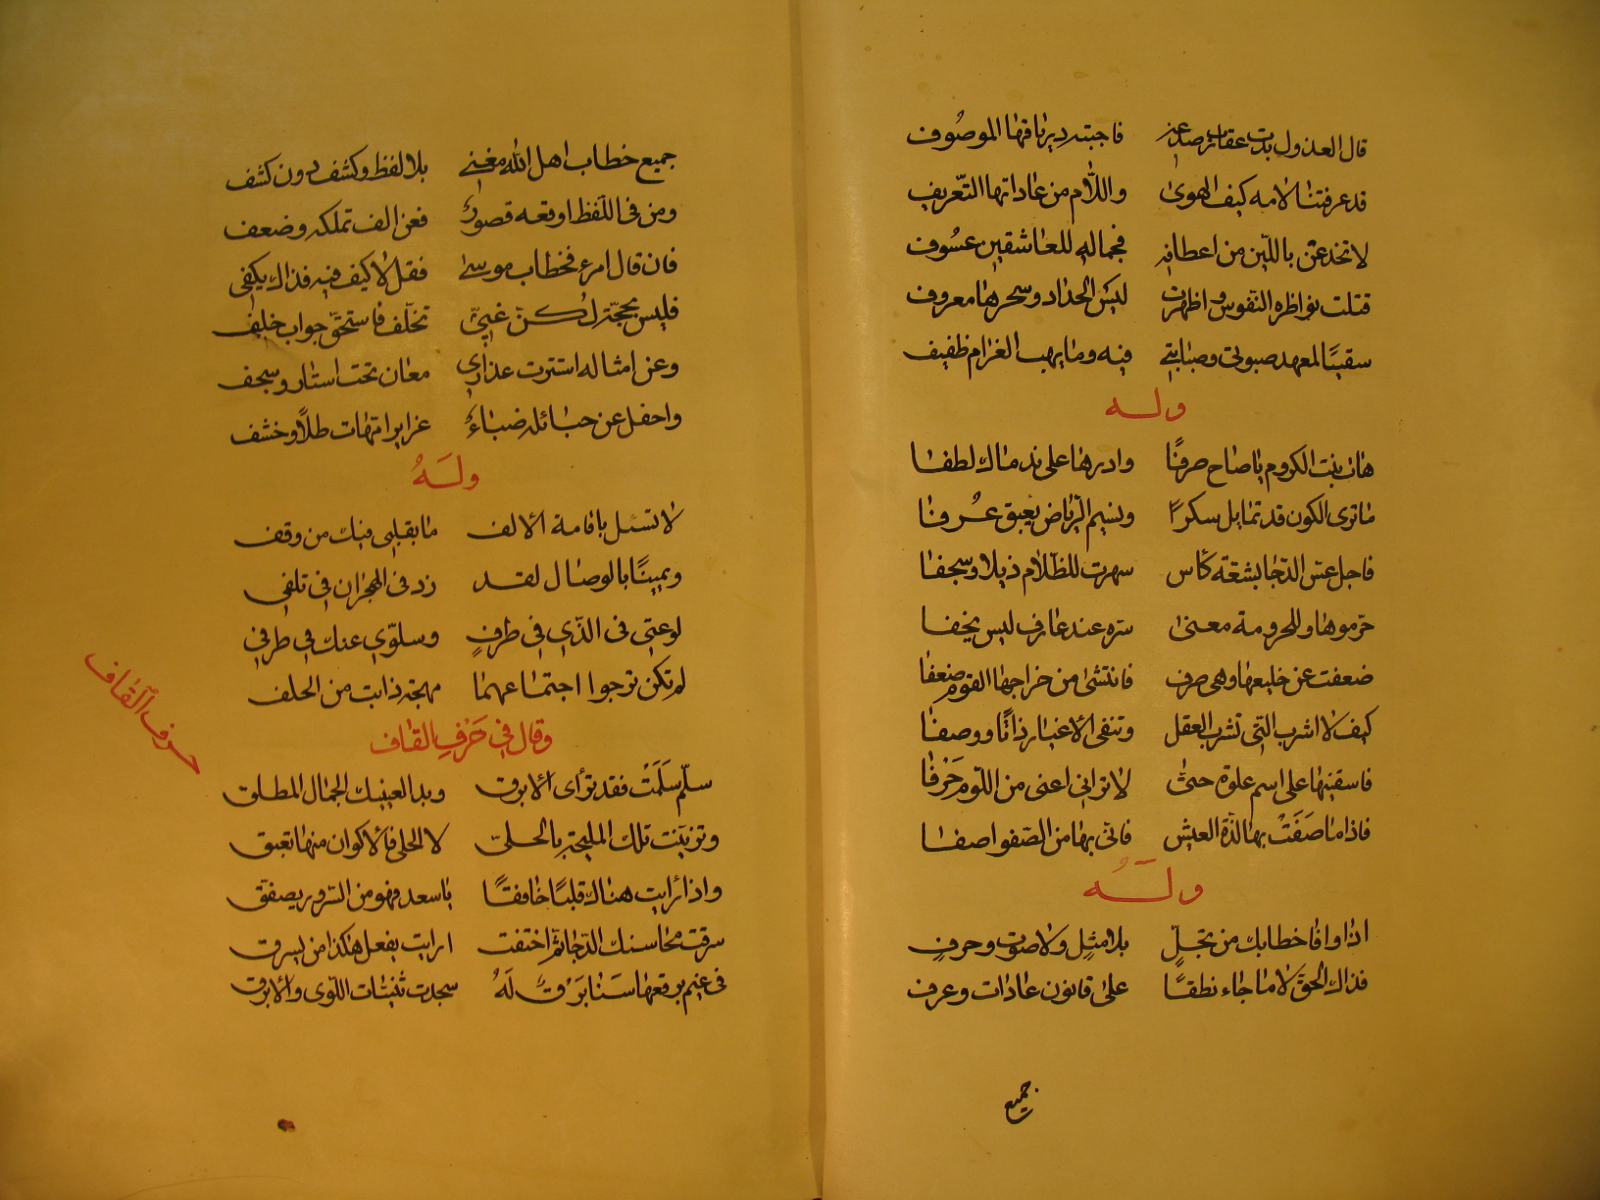 قال العذول بدت عقارب صدغه فاجبته درياقها الموصوف
قد عرفتنا لامه كيف الهوى واللام من عاداتها التعريف
لا تخدعن باللين من اعطافه فجماله للعاشقين عسوف
قتلت نواظره النفوس واظهرت لبس الحداد وسحرها معروف
سقيًا لمعهد صبوتي وصبابتي فيه وما يهب الغرام طفيف
وله
هات بنت الكروم يا صاح صرفًا وادرها على نداماك لطفا
ما ترى الكون قد تمايل سكرًا ونسيم الرياض يعبق عرفا
فاجل عنس الدجا بشعة كاس سهرت للظلام ذيلا وسجفا
حرموها وللحرومة معنى سره عند عارف ليس يخفا
ضعفت عن خليعها وهي صرف فانتشى من خراجها القوم ضعفا
كيف لا اشرب التي تشرب العقل وتنفي الاغيار ذاتًا ووصفا
فاسقنيها على اسم علوة حتى لا تراني اعنى من اللوم حرفا
فاذا ما صفت بها لذة العيش فاني بها من الصفو اصفا
وله
اذا وافا خطابك من تجلٍ بلا مثلٍ ولا صوت وحرفٍ
فذاك الحق لا ما جاء نطقًا على قانون عادات وعرف
جميع
جميع خطاب اهل الله مغني بلا لفظ وكشف دون كشف
ومن في اللفظ اوقعه قصور فعن الف تملكه وضعف
فان قال امرء فخطاب موسى فقل لا كيف فيه فذاك يكفي
فليس بحجة لكن غبي تخلف فاستحق جواب خلف
وعن امثاله استترت عذارى معان تحت استار وسجف
واحفل عن حبائله ضباء غراير امهات طلا وخشف
وله
لا تسئل باقامة الالف ما بقلبي فيك من وقف
ويمينًا بالوصال لقد زد في الهجران في تلفي
لوعتي في الذي في طرفٍ وسلوي عنك في طرفي
لم تكن ترجوا اجتماعهما مهجة ذابت من الحلف
وقال في حرف القاف
حرف القاف
سلم سلمت فقد تراى الابرق وبدا لعينيك الجمال المطلق
وتزينت تلك المليحة بالحلى لا الحلى فالاكوان منها تعبق
واذا رايت هناك قلبًا خافقًا يا سعد فهو من السرور يصفق
سرقت محاسنك الدجا ثم اختفت ارايت يفعل هكذا من يسرق
في غيم برقعها سنا برق له سجدت ثنيات اللوى والابرق